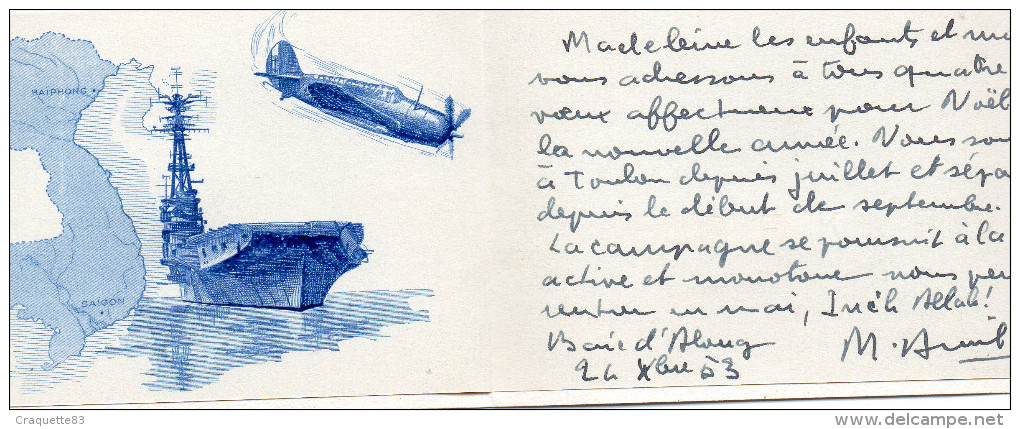 HAIPHONG
SAIGON
Madeleine les enfants et
vous adressons à tous quatre
vœux affectueux pour Noël
la nouvelle année. Nous
à Toulon depuis juillet et
depuis le début de septembre.
La campagne se poursuit à la
active et monotone nous
rentrer en mai, Inch Allah!
Baie d'Along
Xbre 53
M.
Craquette83
www.delcampe.net